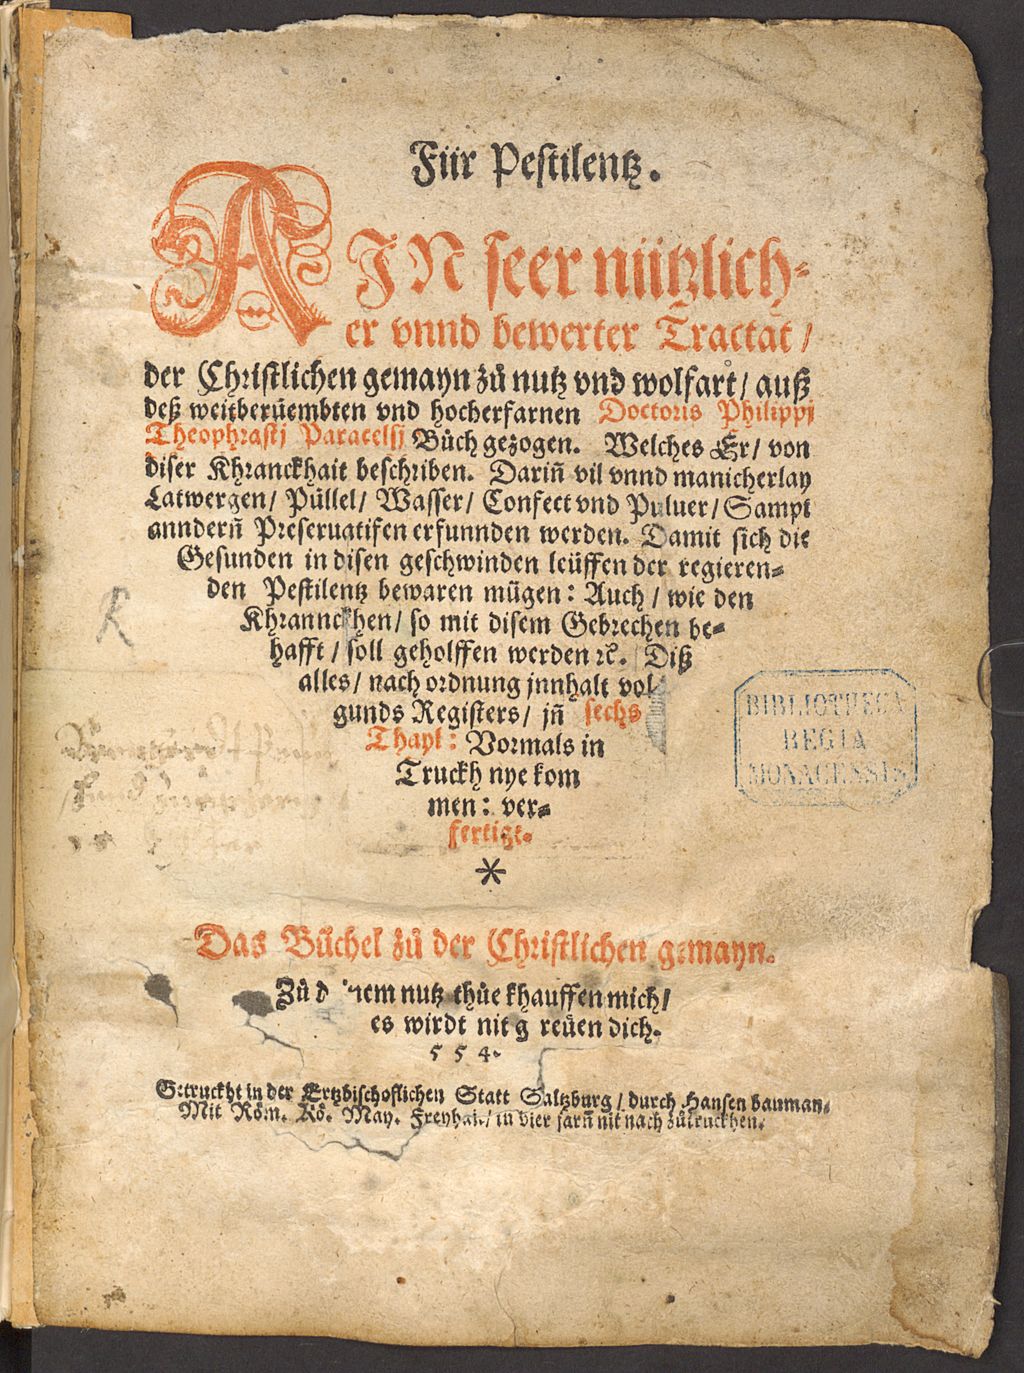 Für Pestilentz.
AJN seer nützlich-
er vnnd bewerter Tractat /
der Christlichen gemayn zů nutz vnd wolfart / auß
deß weitberüembten vnd hocherfarnen Doctoris Philippj
Theophrastj Paracelsj Bůch gezogen. Welches Er / von
diser Khranckhait beschriben. Dariñ vil vnnd manicherlay
Latwergen / Püllel / Wasser / Confect vnd Puluer / Sampt
annderñ Preseruatifen erfunnden werden. Damit sich die
Gesunden in disen geschwinden leüffen der regieren-
den Pestilentz bewaren mügen: Auch / wie den
Khrannckhen / so mit disem Gebrechen be-
hafft / soll geholffen werden ꝛc. Diß
alles / nach ordnung jnnhalt vol
gunds Registers / jñ sechs
Thayl: Vormals in
Truckh nye kom
men: ver-
fertigt.
*
Das Bůchel zů der Christlichen gemayn.
Zů d nem nutz thůe khauffen mich /
es wirdt nit g reüen dich.
554.
Getruckht in der Ertzbischoflichen Statt Saltzburg / durch Hansen bauman.
Mit Röm. Kö. May. Freyhait / in vier jarñ nit nach zůtruckhen.
R
BIBLIOTHECA
REGIA
MONACENSIS